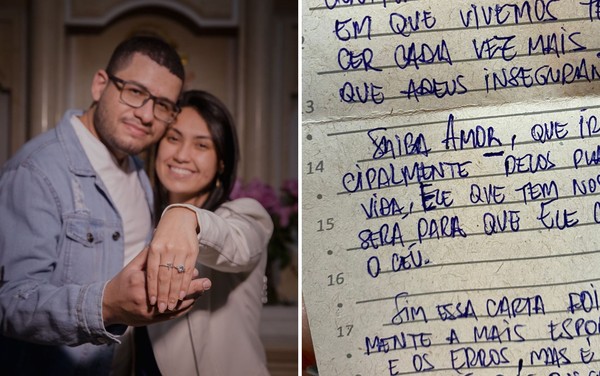 EM QUE VIVEMOS
CER CADA VEZ MAIS
QUE ADEUS INSEGURAN
3
SAIBA AMOR, QUE IR
14
CIPALMENTE PELOS
VIDA, ELE QUE TEM NOS
15
SERÁ PARA QUE ELE C
O CÉU.
16
SIM ESSA CARTA FOI
17
MENTE A MAIS ESPO
E OS ERROS, MAS E